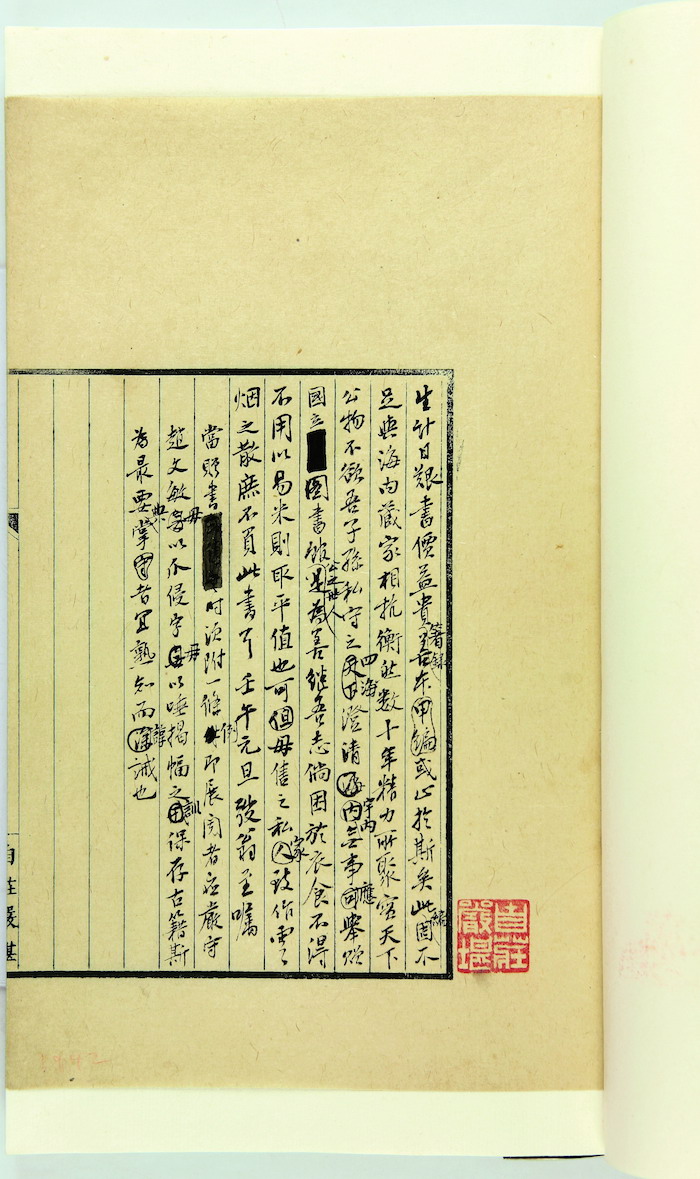 生計日艱書價益貴著錄善本或止於斯矣此編固不
足與海內藏家相抗衡然數十年精力所聚實天下
公物不欲吾子孫私守之四海澄清宇內無事應舉贈
國立圖書館公之世人是為善繼吾志倘困於衣食不得
不用以易米則取平值也可毋售之私家致作雲
烟之散庶不負此書耳壬午元旦弢翁至囑
當贈書時須附一條例即展閱者應嚴守
趙文敏毋以爪侵字毋以唾揭幅之訓保存古籍斯
為最要掌典者宜熟知而謹誡也
自莊嚴堪
自莊嚴堪